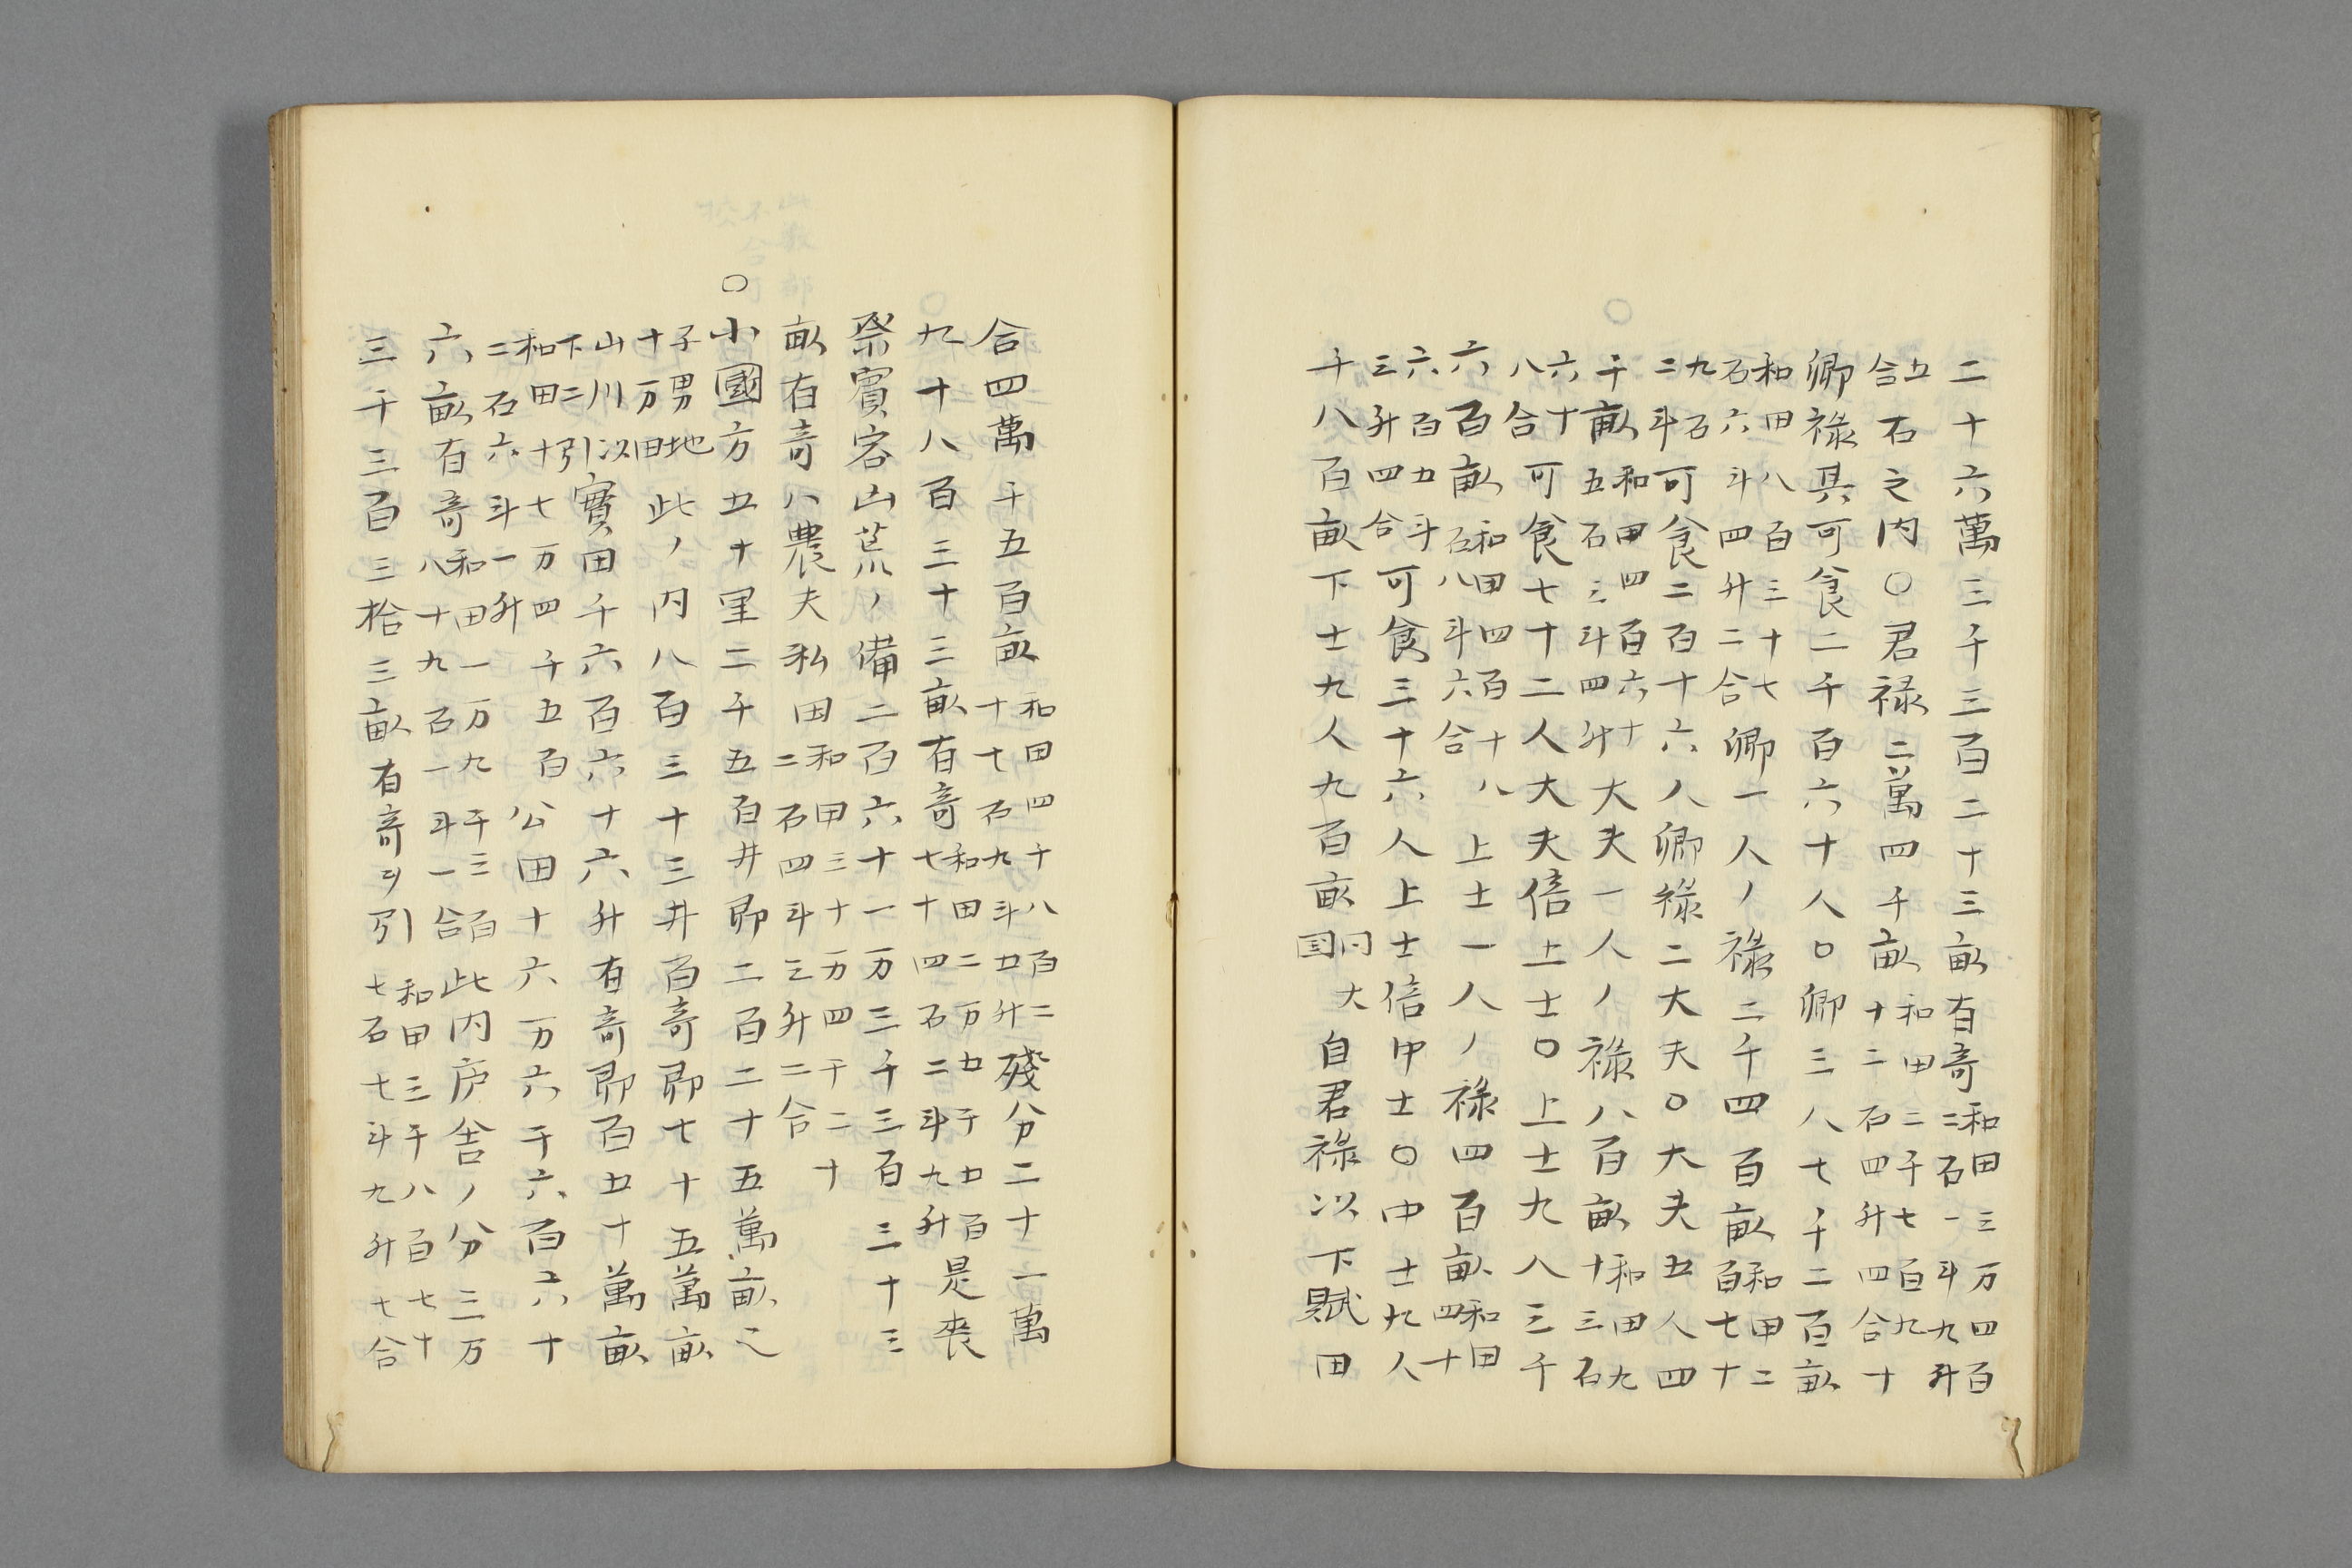 二十六萬三千三百二十三畝有竒和田三万四百二石一斗九升
五合石之内〇君禄二萬四千畝和田二千七百九十二石四升四合十
卿祿其可食二千百六十人〇卿三人七千二百畝
和田八百三十七石六斗四升二合卿一人ノ祿二千四百畝和田二百七十
九石二斗可食二百十六人卿祿二大夫〇大夫五人四
千畝和田四百六十五石三斗四升大夫一人ノ祿八百畝和田九十三石
六十八合可食七十二人大夫倍上士〇上士九人三千
六百畝和田四百十八石八斗六合上士一人ノ祿四百畝和田四十
六百五斗三升四合可食三十六人上士倍中士〇中士九人
千八百畝下士九人九百畝同大国自君祿以下賦田
合四萬千五百畝和田四千八百二十七石九斗五升殘分二十一萬
九十八百三十三畝有竒和田二万五千五百七十四石二斗九升是喪
祭賓客凶荒ノ備二百六十一万三千三百三十三
畝有竒ハ農夫私田和田三十万四千二十二石四斗三升二合
〇小國方五十里二千五百井即二百二十五萬畝之
子男地十万田此ノ内八百三十三井百竒即七十五萬畝
山川以下二引實田千六百六十六升有竒即百五十萬畝
和田十七万四千五百二石六斗一升公田十六万六千六百六十
六畝有竒和田一万九千三百八十九石一斗一合此内庐舎ノ分三万
三千三百三拾三畝有竒ヲ引和田三千八百七十七石七斗九升七合